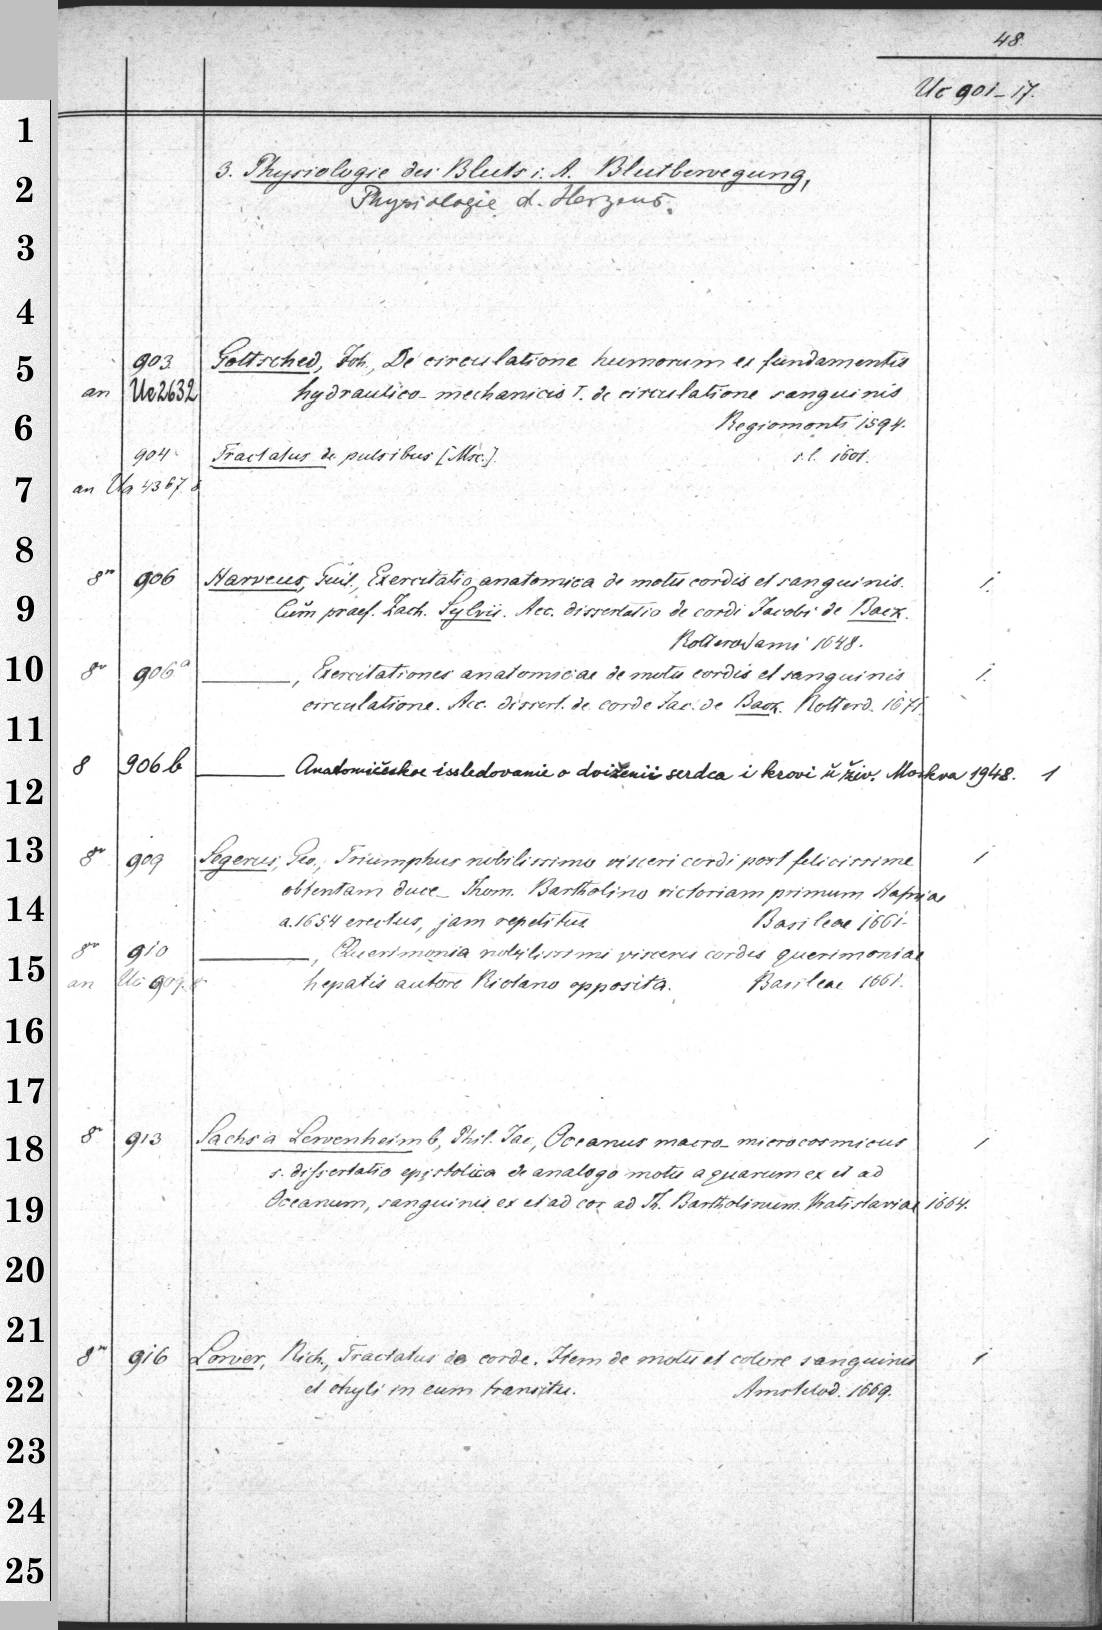 48.
Uc 901-17.
1
2
3. Physiologie des Bluts i. A. Blutbewegung,
Physiologie d. Herzens.
3
4
5
903 Gottsched, Joh., De circulatione humorum ex fundamentis
an Ue2632 hydraulico-mechanicis I. de circulatione sanguinis
6
Regiomonti 1594.
904 Tractatus de pulsibus [Msc.]. s.l. 1601.
7
an Ua 4367 8
8
8° 906 Harveus, Guil., Exercitatio anatomica de motu cordis et sanguinis. 1.
9
Cum praef. Zach. Sylvii. Acc. dissertatio de cordi Jacobi de Back.
Rotterodami 1648.
10
8° 906a ———, Exercitationes anatomicae de motu cordis et sanguinis 1.
circulatione. Acc. dissert. de corde Jac. de Back. Rotterd. 1671.
11
8 906b ——— Anatomičeskoe issledovanie o dviženii serdca i krovi ž živ. Moskva 1948. 1
12
13
8° 909 Segerus, Geo., Triumphus nobilissimo visceri cordi post felicissime 1
obtentam duce Thom. Bartholino victoriam primum Hafniae
14
a. 1654 erectus, jam repetitus Basileae 1661.
8° 910 ———, Querimonia nobilissimi visceris cordis querimoniae
15
an Uc 909. 8° hepatis autore Riolano opposita. Basileae 1661.
16
17
18
8° 913 Sachs a Lewenheimb, Phil. Jac., Oceanus macro-microcosmicus 1
s. dissertatio epistolica de analogo motu aquarum ex et ad
19
Oceanum, sanguinis ex et ad cor ad Th. Bartholinum. Vratislaviae 1664.
20
21
8° 916 Lower, Rich., Tractatus de corde. Item de motu et colore sanguinis 1
22
et chyli in eum transitu. Amstelod. 1669.
23
24
25